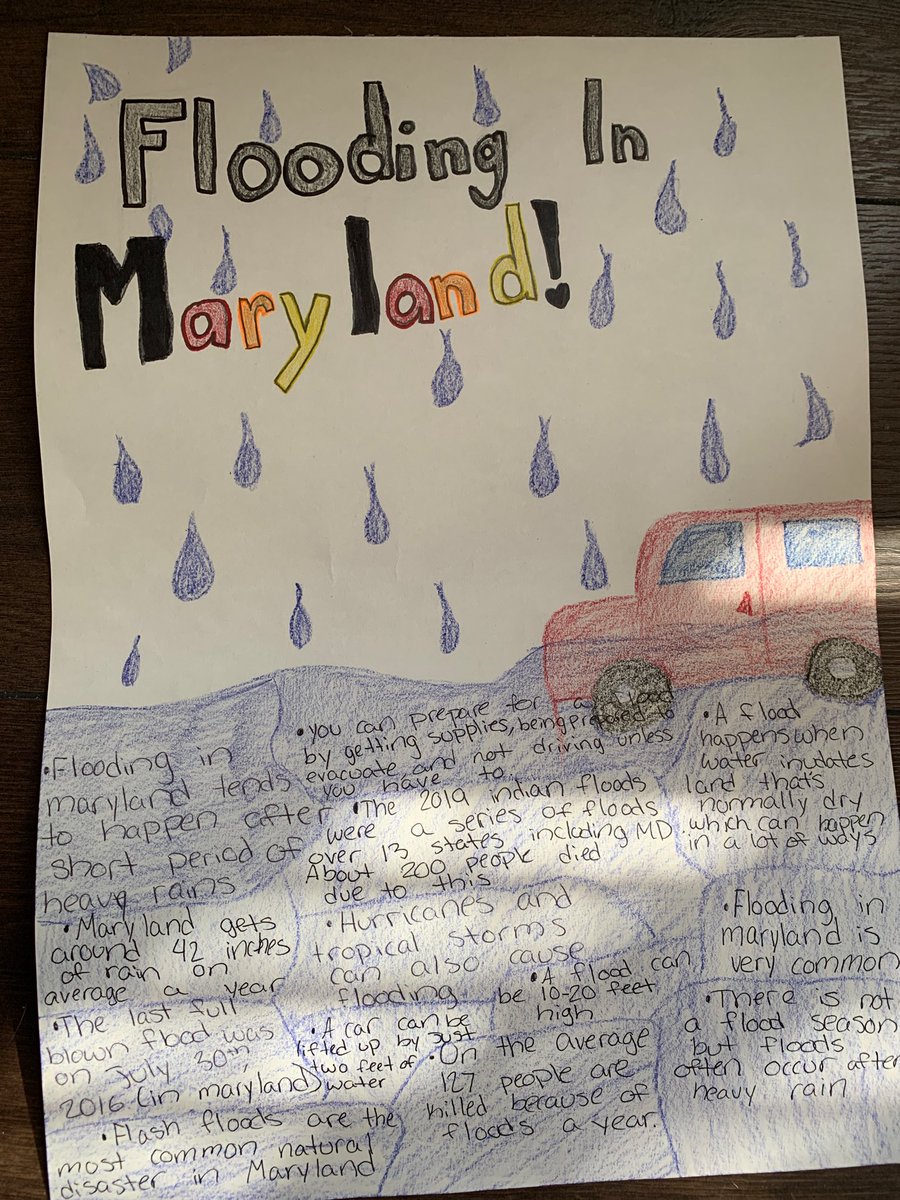 Flooding In
Maryland!
•Flooding in
maryland tends
to happen after
short period of
heavy rains
•you can prepare for a flood
by getting supplies, being prepared to
evacuate and not driving unless
you have to.
•A flood
happens when
water inutates
land that's
normally dry
which can happen
in a lot of ways
•The 2019 indian floods
were a series of floods
over 13 states including MD.
About 200 people died
due to this
•Maryland gets
around 42 inches
of rain on
average a year
•Hurricanes and
tropical storms
can also cause
flooding
•Flooding in
maryland is
very common
•A flood can
be 10-20 feet
high
•The last full
blown flood was
on July 30th,
2016. (in maryland)
•A car can be
lifted up by just
two feet of
water
•On the average
127 people are
killed because of
floods a year.
•There is not
a flood season
but floods
often occur after
heavy rain
•Flash floods are the
most common natural
disaster in Maryland